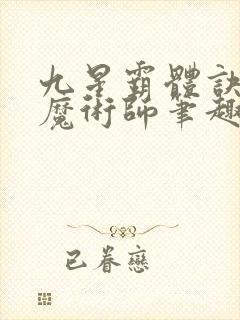 九星霸體訣
魔術師筆趣
已眷戀